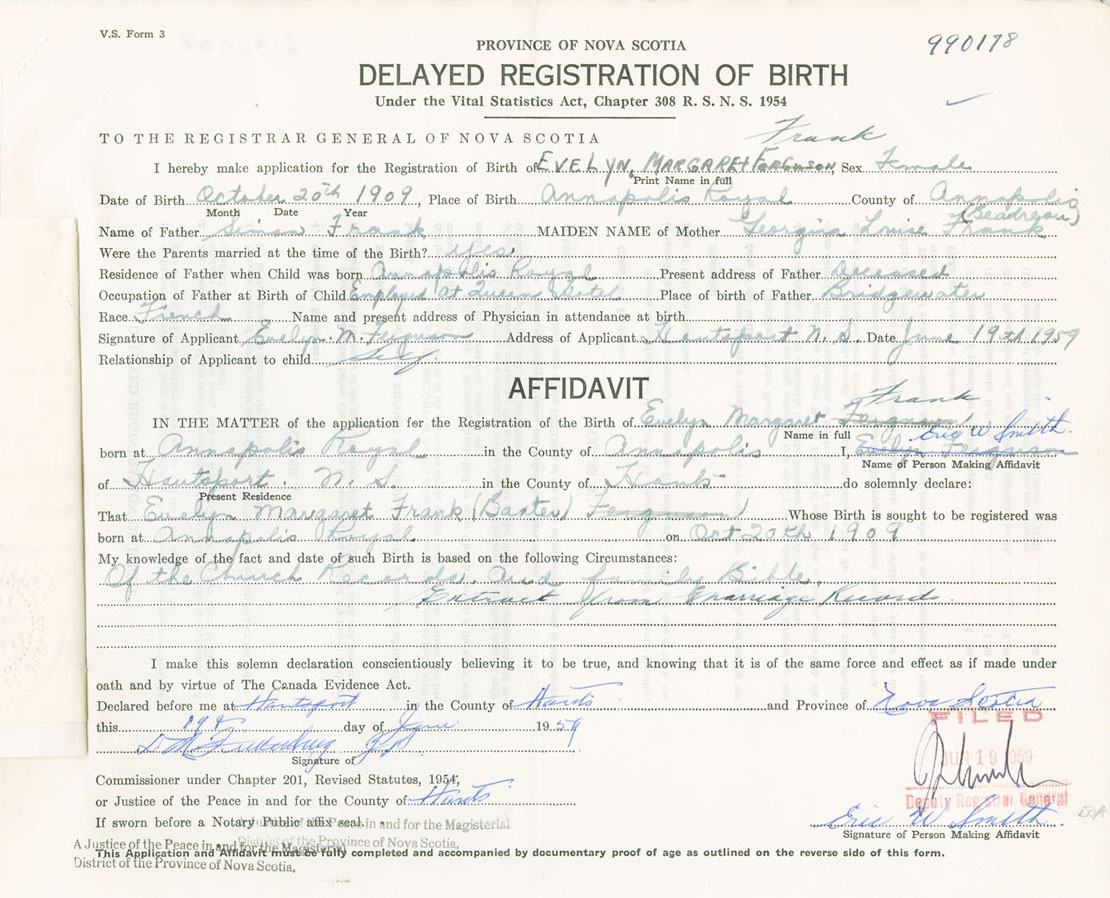 V.S. Form 3
990178
PROVINCE OF NOVA SCOTIA
DELAYED REGISTRATION OF BIRTH
Under the Vital Statistics Act, Chapter 308 R. S. N. S. 1954
TO THE REGISTRAR GENERAL OF NOVA SCOTIA
Frank
I hereby make application for the Registration of Birth of EVELYN, MARGARET Ferguson, Sex Female
Print Name in full
Date of Birth October 20th 1909, Place of Birth Annapolis Royal County of Annapolis
Month Date Year
(Beadreau)
Name of Father Simon Frank MAIDEN NAME of Mother Georgina Louise Frank
Were the Parents married at the time of the Birth? yes
Residence of Father when Child was born Annapolis Royal Present address of Father deceased
Occupation of Father at Birth of Child Employed At Queen Hotel Place of birth of Father Bridgewater
Race French Name and present address of Physician in attendance at birth
Signature of Applicant Evelyn. M. Ferguson Address of Applicant Hantsport N. S. Date June 19th 1959
Relationship of Applicant to child Self
AFFIDAVIT
Frank
IN THE MATTER of the application for the Registration of the Birth of Evelyn Margaret Ferguson
Name in full
Eric W Smith.
born at Annapolis Royal in the County of Annapolis I, Evelyn Ferguson
Name of Person Making Affidavit
of Hantsport. N. S. in the County of Hants do solemnly declare:
Present Residence
That Evelyn Margaret Frank (Baxter) Ferguson Whose Birth is sought to be registered was
born at Annapolis Royal on Oct 20th 1909
My knowledge of the fact and date of such Birth is based on the following Circumstances:
Of the Church Records. And family Bible.
Extract from Marriage Records.
I make this solemn declaration conscientiously believing it to be true, and knowing that it is of the same force and effect as if made under
oath and by virtue of The Canada Evidence Act.
Declared before me at Hantsport in the County of Hants and Province of Nova Scotia
this 19th day of June 1959
FILED
JUN 19 1959
Signature of
Commissioner under Chapter 201, Revised Statutes, 1954,
or Justice of the Peace in and for the County of Hants
Deputy Registrar General
If sworn before a Notary Public affix seal.
Eric W Smith.
Signature of Person Making Affidavit
A Justice of the Peace in and for the Magisterial
District of the Province of Nova Scotia.
This Application and Affidavit must be fully completed and accompanied by documentary proof of age as outlined on the reverse side of this form.
A Justice of the Peace in and for the Magisterial
District of the Province of Nova Scotia.